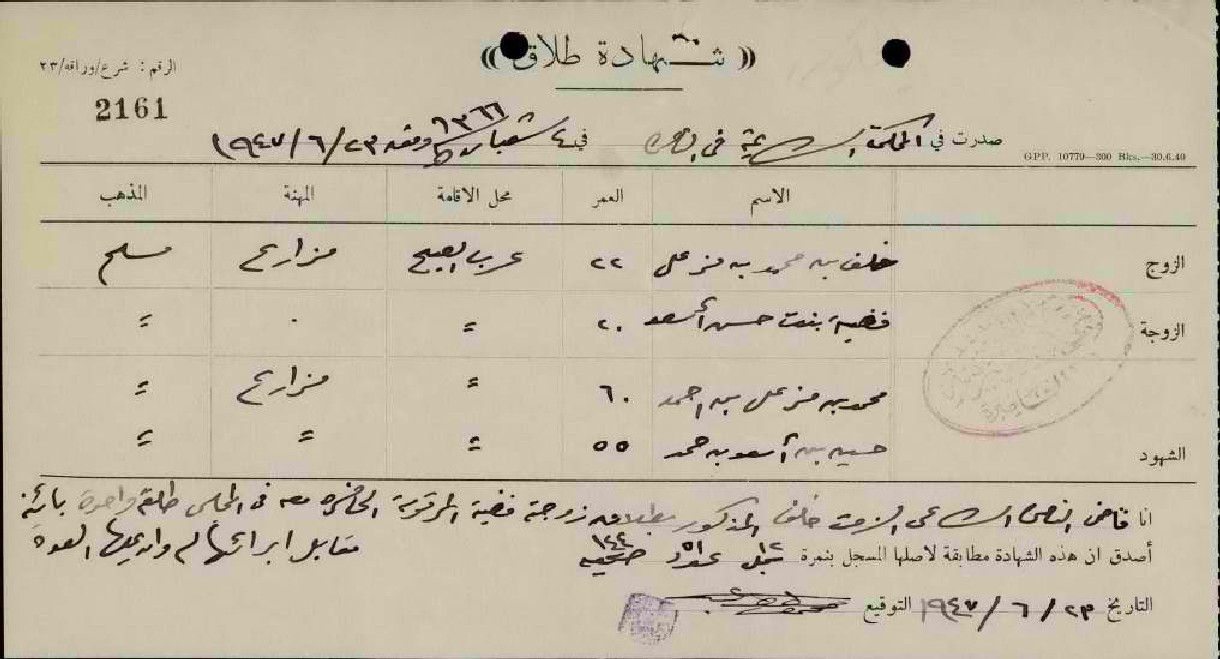 « شهادة طلاق »
الرقم : شرع/وراقه/٢٣
2161
صدرت في المحكمة الشرعية في الناصرة في ٤ شعبان ١٣٦٦ وفقه ٢٣/٦/١٩٤٧
G.P.P. 10770—300 Bks.—30.6.40
الاسم العمر محل الاقامة المهنة المذهب
الزوج خلف بن محمد بن مزعل ٢٢ عرب الصبيح مزارع مسلم
الزوجة فضية بنت حسن أسعد ٢٠ = . =
محمد بن مزعل بن احمد ٦٠ = مزارع =
الشهود حسين بن أسعد بن حمد ٥٥ = = =
انا قاضي الناصرة الشرعي الزمت خلف المذكور بطلاق زوجته فضية المرقومة الحاضرة معه في المجلس طلقة واحدة بائنة
مقابل ابرائها له وعليها العدة
أصدق ان هذه الشهادة مطابقة لأصلها المسجل بنمرة ١٢ عدد ٥١ صحيفة ١٤٤
التاريخ ٢٣/٦/١٩٤٧ التوقيع